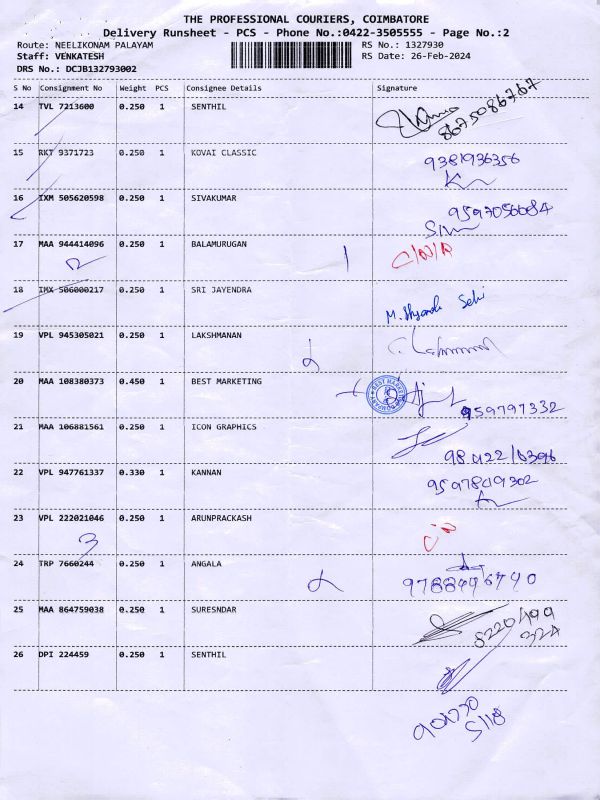 THE PROFESSIONAL COURIERS, COIMBATORE
Delivery Runsheet - PCS - Phone No.:0422-3505555 - Page No.:2
Route: NEELIKONAM PALAYAM RS No.: 1327930
Staff: VENKATESH RS Date: 26-Feb-2024
DRS No.: DCJB132793002
S No Consignment No Weight PCS Consignee Details Signature
14 TVL 7213600 0.250 1 SENTHIL
8675086767
15 RKT 9371723 0.250 1 KOVAI CLASSIC
9381936356
16 IXM 505620598 0.250 1 SIVAKUMAR
9597056684
17 MAA 944414096 0.250 1 BALAMURUGAN
18 IMX 506000217 0.250 1 SRI JAYENDRA
19 VPL 945305021 0.250 1 LAKSHMANAN
20 MAA 108380373 0.450 1 BEST MARKETING
BEST MARKETING
959797332
21 MAA 106881561 0.250 1 ICON GRAPHICS
22 VPL 947761337 0.330 1 KANNAN
9597809302
23 VPL 222021046 0.250 1 ARUNPRACKASH
3
24 TRP 7660244 0.250 1 ANGALA
25 MAA 864759038 0.250 1 SURESNDAR
26 DPI 224459 0.250 1 SENTHIL